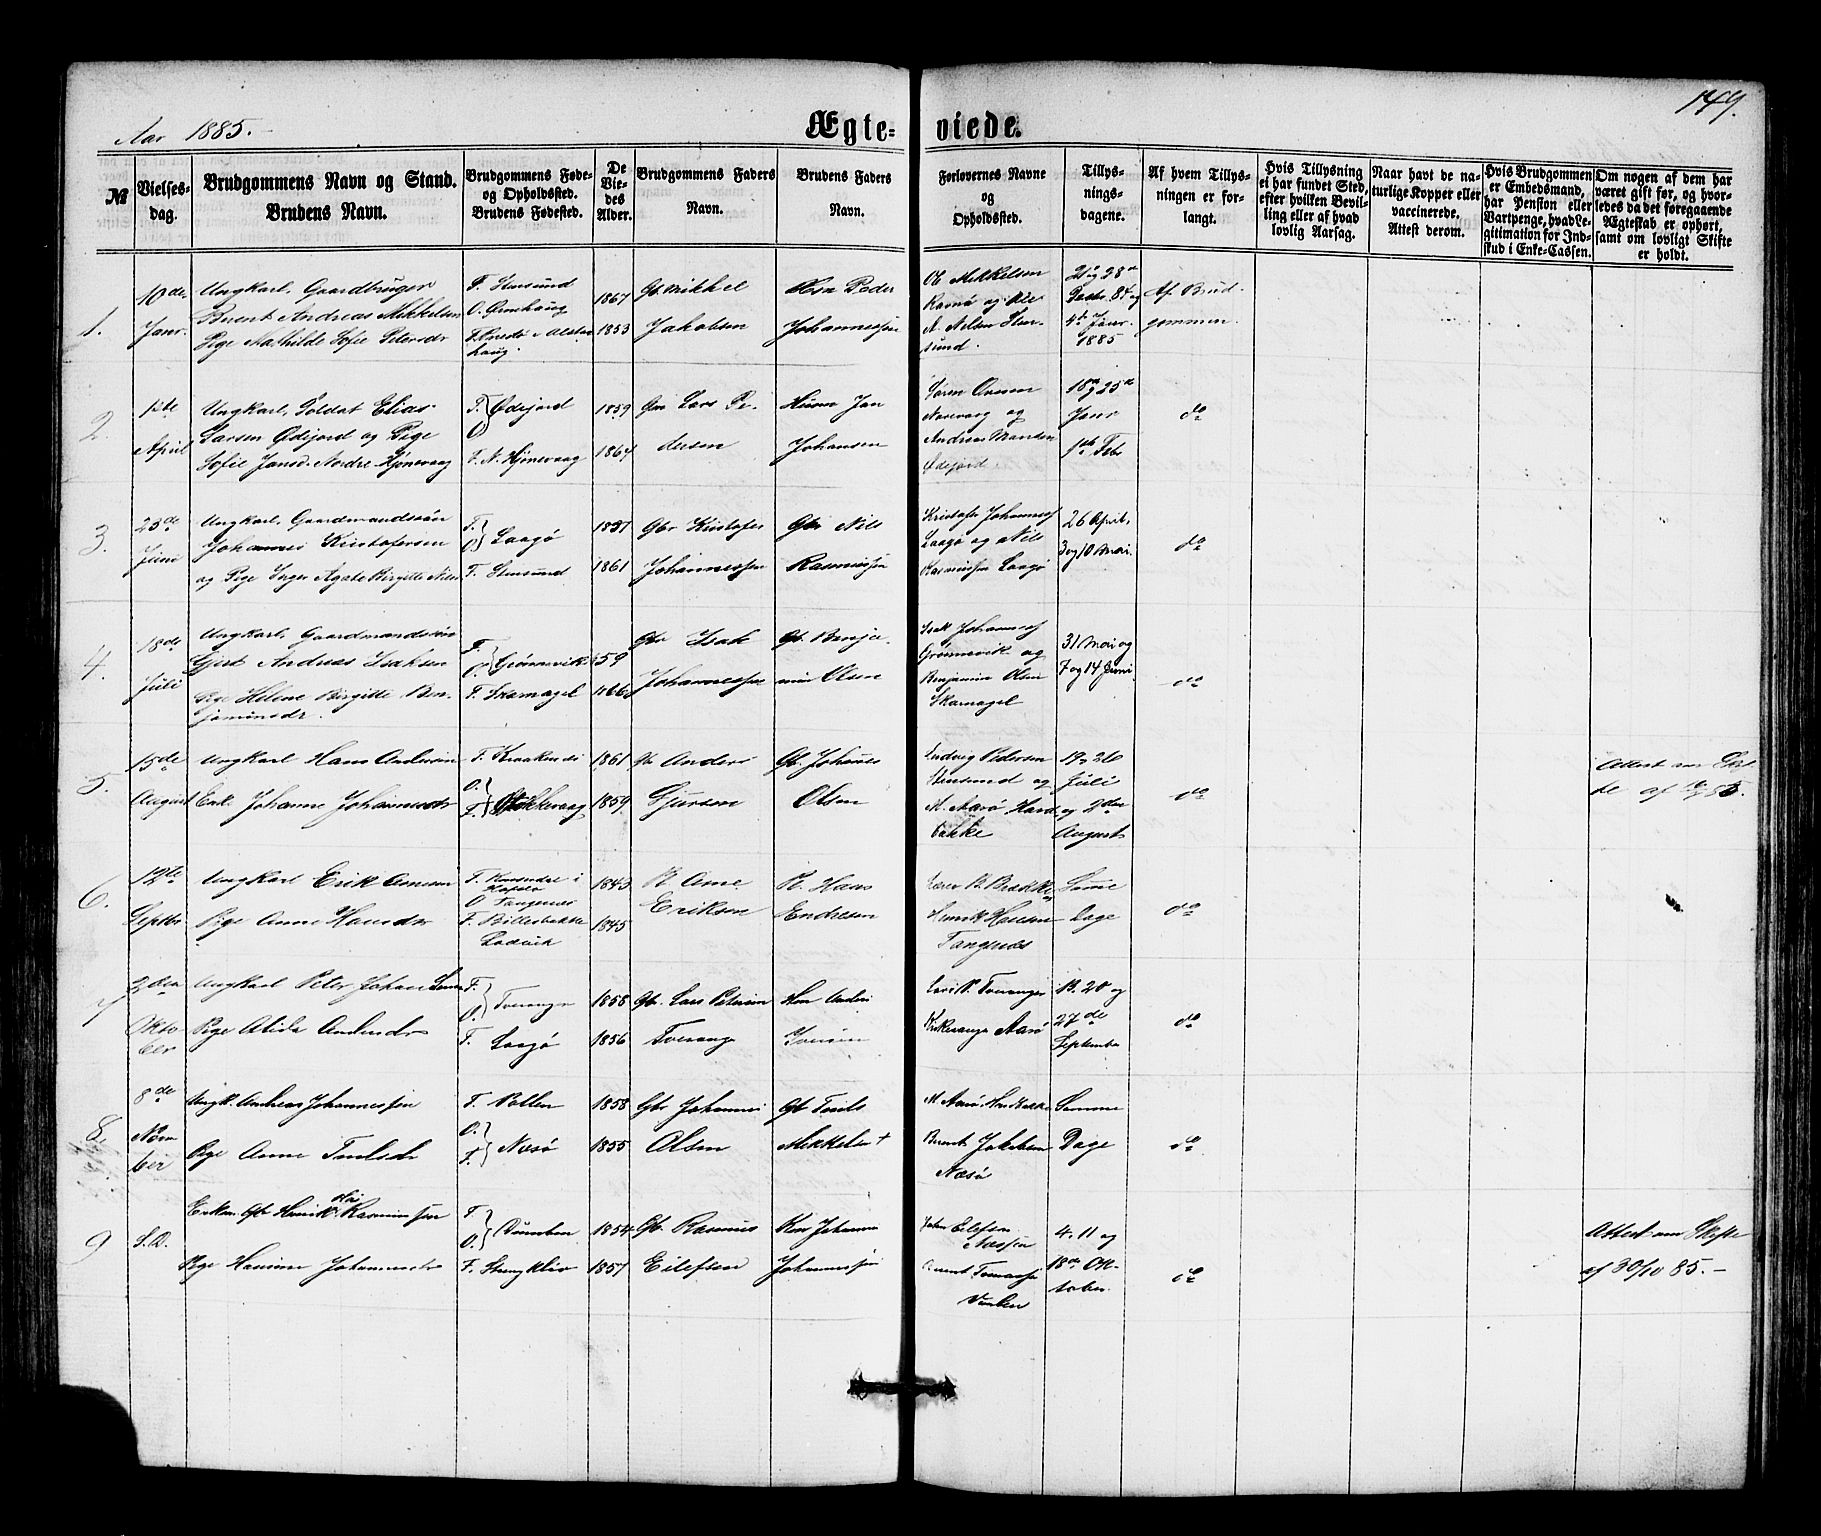 149.
Aar 1885.
Ægte-viede.
№
Vielses-
dag.
Brudgommens Navn og Stand.
Brudens Navn.
Brudgommens Føde-
og Opholdssted.
Brudens Fødested.
De
Vie-
des
Alder.
Brudgommens Faders
Navn.
Brudens Faders
Navn.
Forlovernes Navne
og
Opholdssted.
Tillys-
nings-
dagene.
Af hvem Tillys-
ningen er for-
langt.
Hvis Tillysning
ei har fundet Sted,
efter hvilken Bevil-
ling eller af hvad
lovlig Aarsag.
Naar havt de na-
turlige Kopper eller
vaccinerede.
Attest derom.
Hvis Brudgommen
er Embedsmand,
har Pension eller
Vartpenge, hvad Le-
gitimation for Ind-
skud i Enke-Cassen.
Om nogen af dem har
været gift før, og hvor-
ledes da det foregaaende
Ægteskab er ophørt,
samt om lovligt Skifte
er holdt.
1.
10de
Janr.
Ungkarl, Gaardbruger
Berent Andreas Mikkelsen
Pige Mathilde Sofie Petersdr
F. Stensund
1867
1853
Gbr Mikkel
Jakobsen
Peder
Johannessen
Ol Mikkelsen
Ravnø og Ole
A. Nelsen Sten-
sund.
21 og 28de
Decbr. 84 og
4de Janr.
1885
Af Brud-
gommen.
2.
1ste
April
Ungkarl, Soldat Elias
Larsen Ødejord og Pige
Sofie Jansd. Nordre Hjønevaag
F. O. Ødejord
F. N. Hjønevaag
1859
1864
Gbr Lars Pe-
dersen
Husm Jan
Johansen
Søren
og
Andreas Monsen
Ødejord
18de og 25de
Janr
1ste Febr
do
3.
25de
Juni
Ungkarl, Gaardmandssøn
Johannes Kristofersen
og Pige Inger Agate Birgitte Nils
F. O. Laagø
F. Stensund
1857
1861
Gbr Kristofer
Johannessen
Gbr Nils
Rasmussen
Kristofer Johannes
Laagø og Nils
Rasmussen Laagø
26 April,
3 og 10 Mai.
do
4.
18de
Juli
Ungkarl, Gaardmandssøn
Gjert Andreas Isaksen
Pige Helene Birgitte Ben-
jaminsdr.
F. O. Grønnevik
F. Skarnagel
59
1866
Gbr Isak
Johannessen
Gbr Benja-
min Olsen
Isak Johannes
Grønnevik og
Benjamin Olsen
Skarnagel
31 Mai og
7 og 14 Juni
do
5.
15de
August
Ungkarl Hans Andersen
Enke Johanne Johannesdr
F. Kraakenes
O. F. Stokkevaag
1861
1859
Anders
Gjursen
Gb. Johannes
Olsen
Ludvig Pedersen
Stensund og
M. Aarø Hard-
bakke
19. 26
Juli
og 2den
August
do
Attest om Skif-
te af
6.
12te
Septbr
Ungkarl Erik Arnesen
Pige Anne Hansdr
O Tangenes
F. Billesbakke
Ladvik
1843
1845
Arne
Eriksen
Hans
Endresen
Henrik Hansen
Tangenes
Samme
Dage
do
7
3den
Okto-
ber
Ungkarl Peter Johan Larsen
Pige Alida Andersdr
F. O. Tveranger
F. Laagø
1858
1856
Gb. Lars Petersen
Tverange
Anders
Iversen
Lars P. Tveranger
Aarø
13. 20 og
27de
September
do
8.
8de
Novem-
ber
Ungk. Andreas Johannessen
Pige Anne Troelsdr
F. Pollen
O. F. Næsø
1858
1855
Gbr Johannes
Olsen
Gb Troels
Mikkelsen +
M. Aarø. Hardbakke
Berent Jakobsen
Næsø
Samme
Dage
do
9
S. D.
Enkem. Gbr Henrik Rasmussen
Pige Hansine Johannesdr
F. O.
F.
1854
1857
Gb. Rasmus
Eilefsen
Johannes
Johannessen
Eilefsen
4. 11 og
18de Ok-
tober.
do
Attest om Skifte
af 30/10 85. –